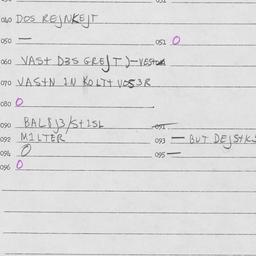 040 DOS REJNKEJT
050 — 051 O
060 VAST D3S GREJT)-VEST
070 VASTN IN KOLT+ VOS3R
080 O
090 BAL8J3/ST1SL 091
092 M1LTER 093 — BUT DEJSTKS
094 O 095 —
096 O